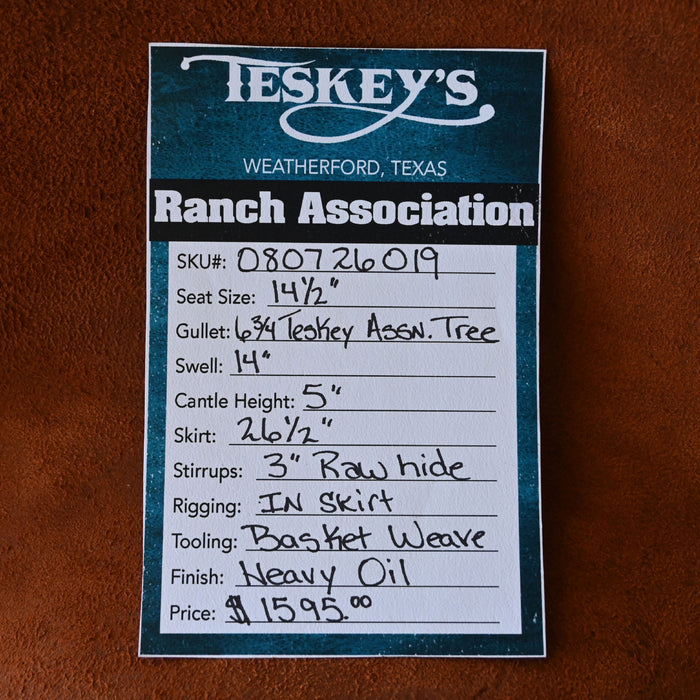 TESKEY'S
WEATHERFORD, TEXAS
Ranch Association
SKU#: 080726019
Seat Size: 14 1/2"
Gullet: 6 3/4 Teskey Assn. Tree
Swell: 14"
Cantle Height: 5"
Skirt: 26 1/2"
Stirrups: 3" Rawhide
Rigging: IN Skirt
Tooling: Basket Weave
Finish: Heavy Oil
Price: $1595.00